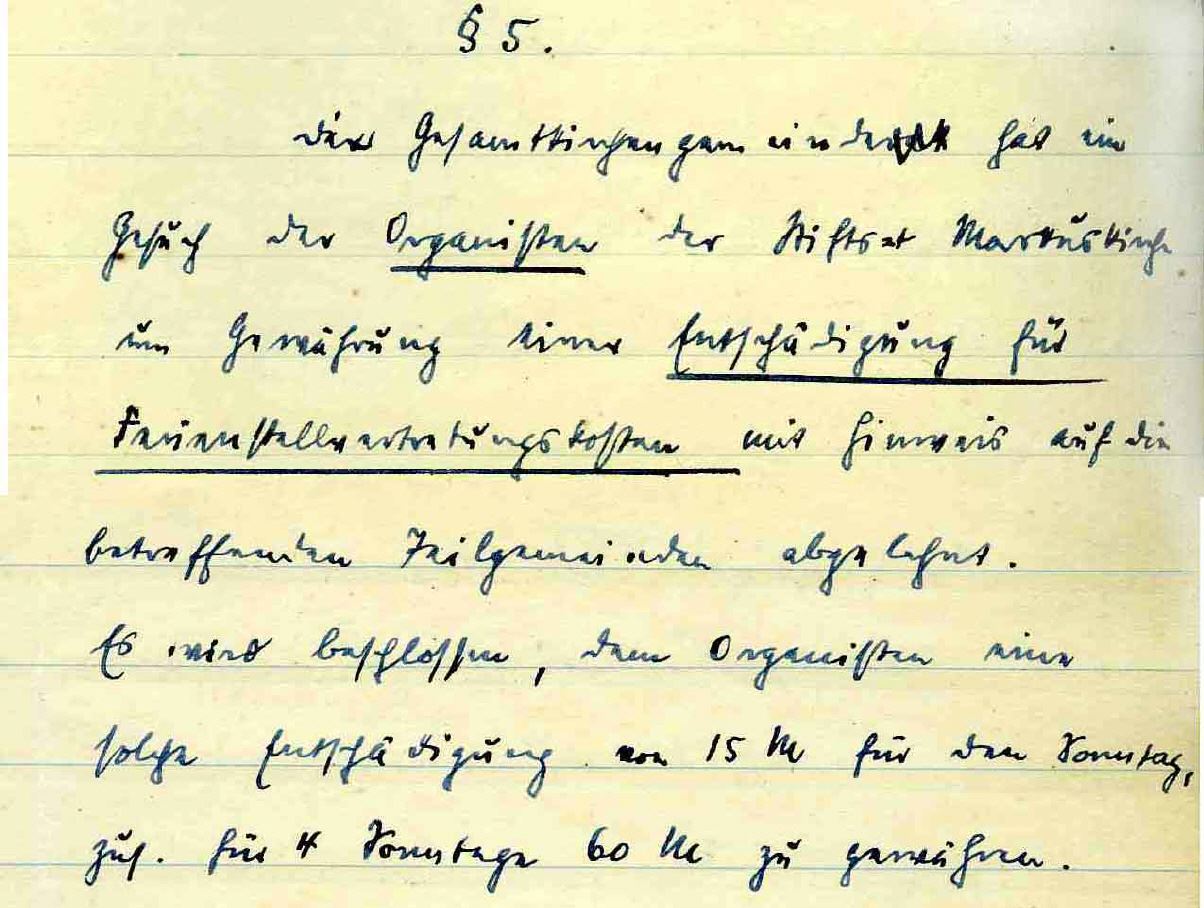 § 5.
Der Gesamtkirchengemeinderat hat ein
Gesuch der Organisten der Stifts u. Markuskirche
um Gewährung einer Entschädigung für
Ferienstellvertretungskosten mit Hinweis auf die
betreffenden Teilgemeinden abgelehnt.
Es wird beschlossen, dem Organisten eine
solche Entschädigung von 15 M für den Sonntag,
zus. für 4 Sonntage 60 M zu gewähren.